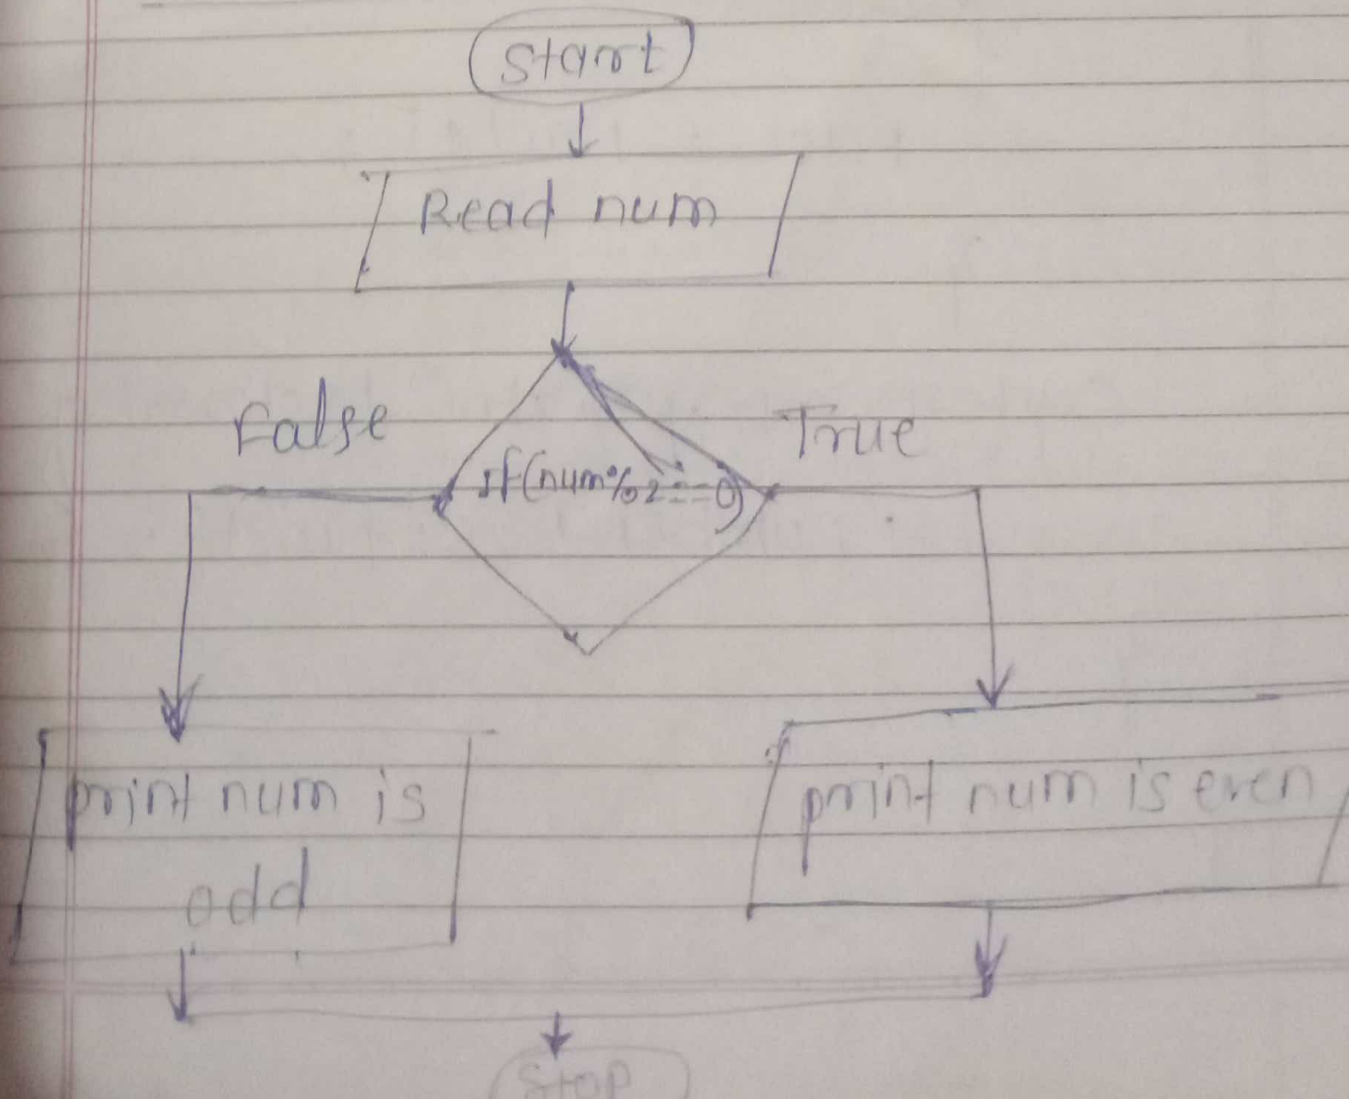 Start
Read num
False
True
if(num%2==0)
print num is
odd
print num is even
Stop